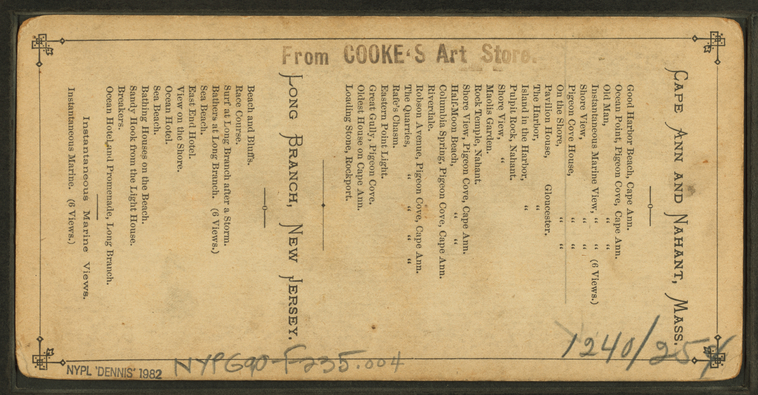 From COOKE'S Art Store.
CAPE ANN AND NAHANT, MASS.
Good Harbor Beach, Cape Ann.
Ocean Point, Pigeon Cove, Cape Ann.
Old Man, " " "
Instantaneous Marine View, " " (6 Views.)
Shore View, " " "
Pigeon Cove House, " "
On the Shore, " "
Pavilion House, Gloucester.
The Harbor, "
Island in the Harbor, "
Pulpit Rock, Nahant.
Shore View, "
Maolis Garden.
Rock Temple, Nahant.
Shore View, Pigeon Cove, Cape Ann.
Half-Moon Beach, " "
Columbia Spring, Pigeon Cove, Cape Ann.
Riverdale.
Robson Avenue, Pigeon Cove, Cape Ann.
The Quarries, " " "
Rafe's Chasm.
Eastern Point Light.
Great Gully, Pigeon Cove.
Oldest House on Cape Ann.
Loading Stone, Rockport.
LONG BRANCH, NEW JERSEY.
Beach and Bluffs.
Race Course.
Surf at Long Branch after a Storm.
Bathers at Long Branch. (6 Views.)
Sea Beach.
East End Hotel.
View on the Shore.
Ocean Hotel.
Sea Beach.
Bathing Houses on the Beach.
Sandy Hook from the Light House.
Breakers.
Ocean Hotel and Promenade, Long Branch.
Instantaneous Marine Views.
Instantaneous Marine. (6 Views.)
1240/254
NYPL 'DENNIS' 1982
NYPG90-F235.004